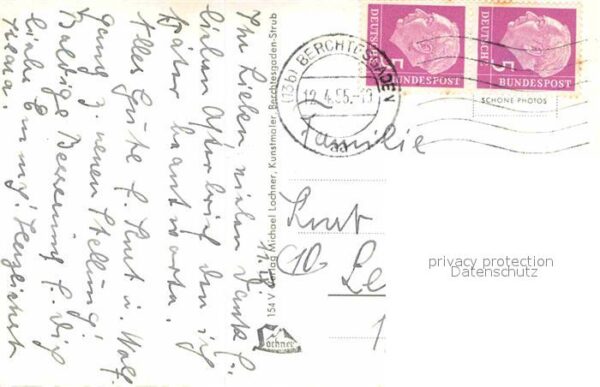 12.4.
Ihr Lieben vielen Dank f.
lieben Osterbrief den ich
später beantworte.
Alles Gute f. Knut u. Wolfg.
z. neuen Stellung,
Baldige Besserung f. Dich
liebe E. Herzlichst
154 V Verlag Michael Lochner, Kunstmaler, Berchtesgaden-Strub
Lochner
DEUTSCHE BUNDESPOST
5
DEUTSCHE BUNDESPOST
5
(13b) BERCHTESGADEN
12.4.55.-19
SCHÖNE PHOTOS
Familie
Knut
privacy protection
Datenschutz